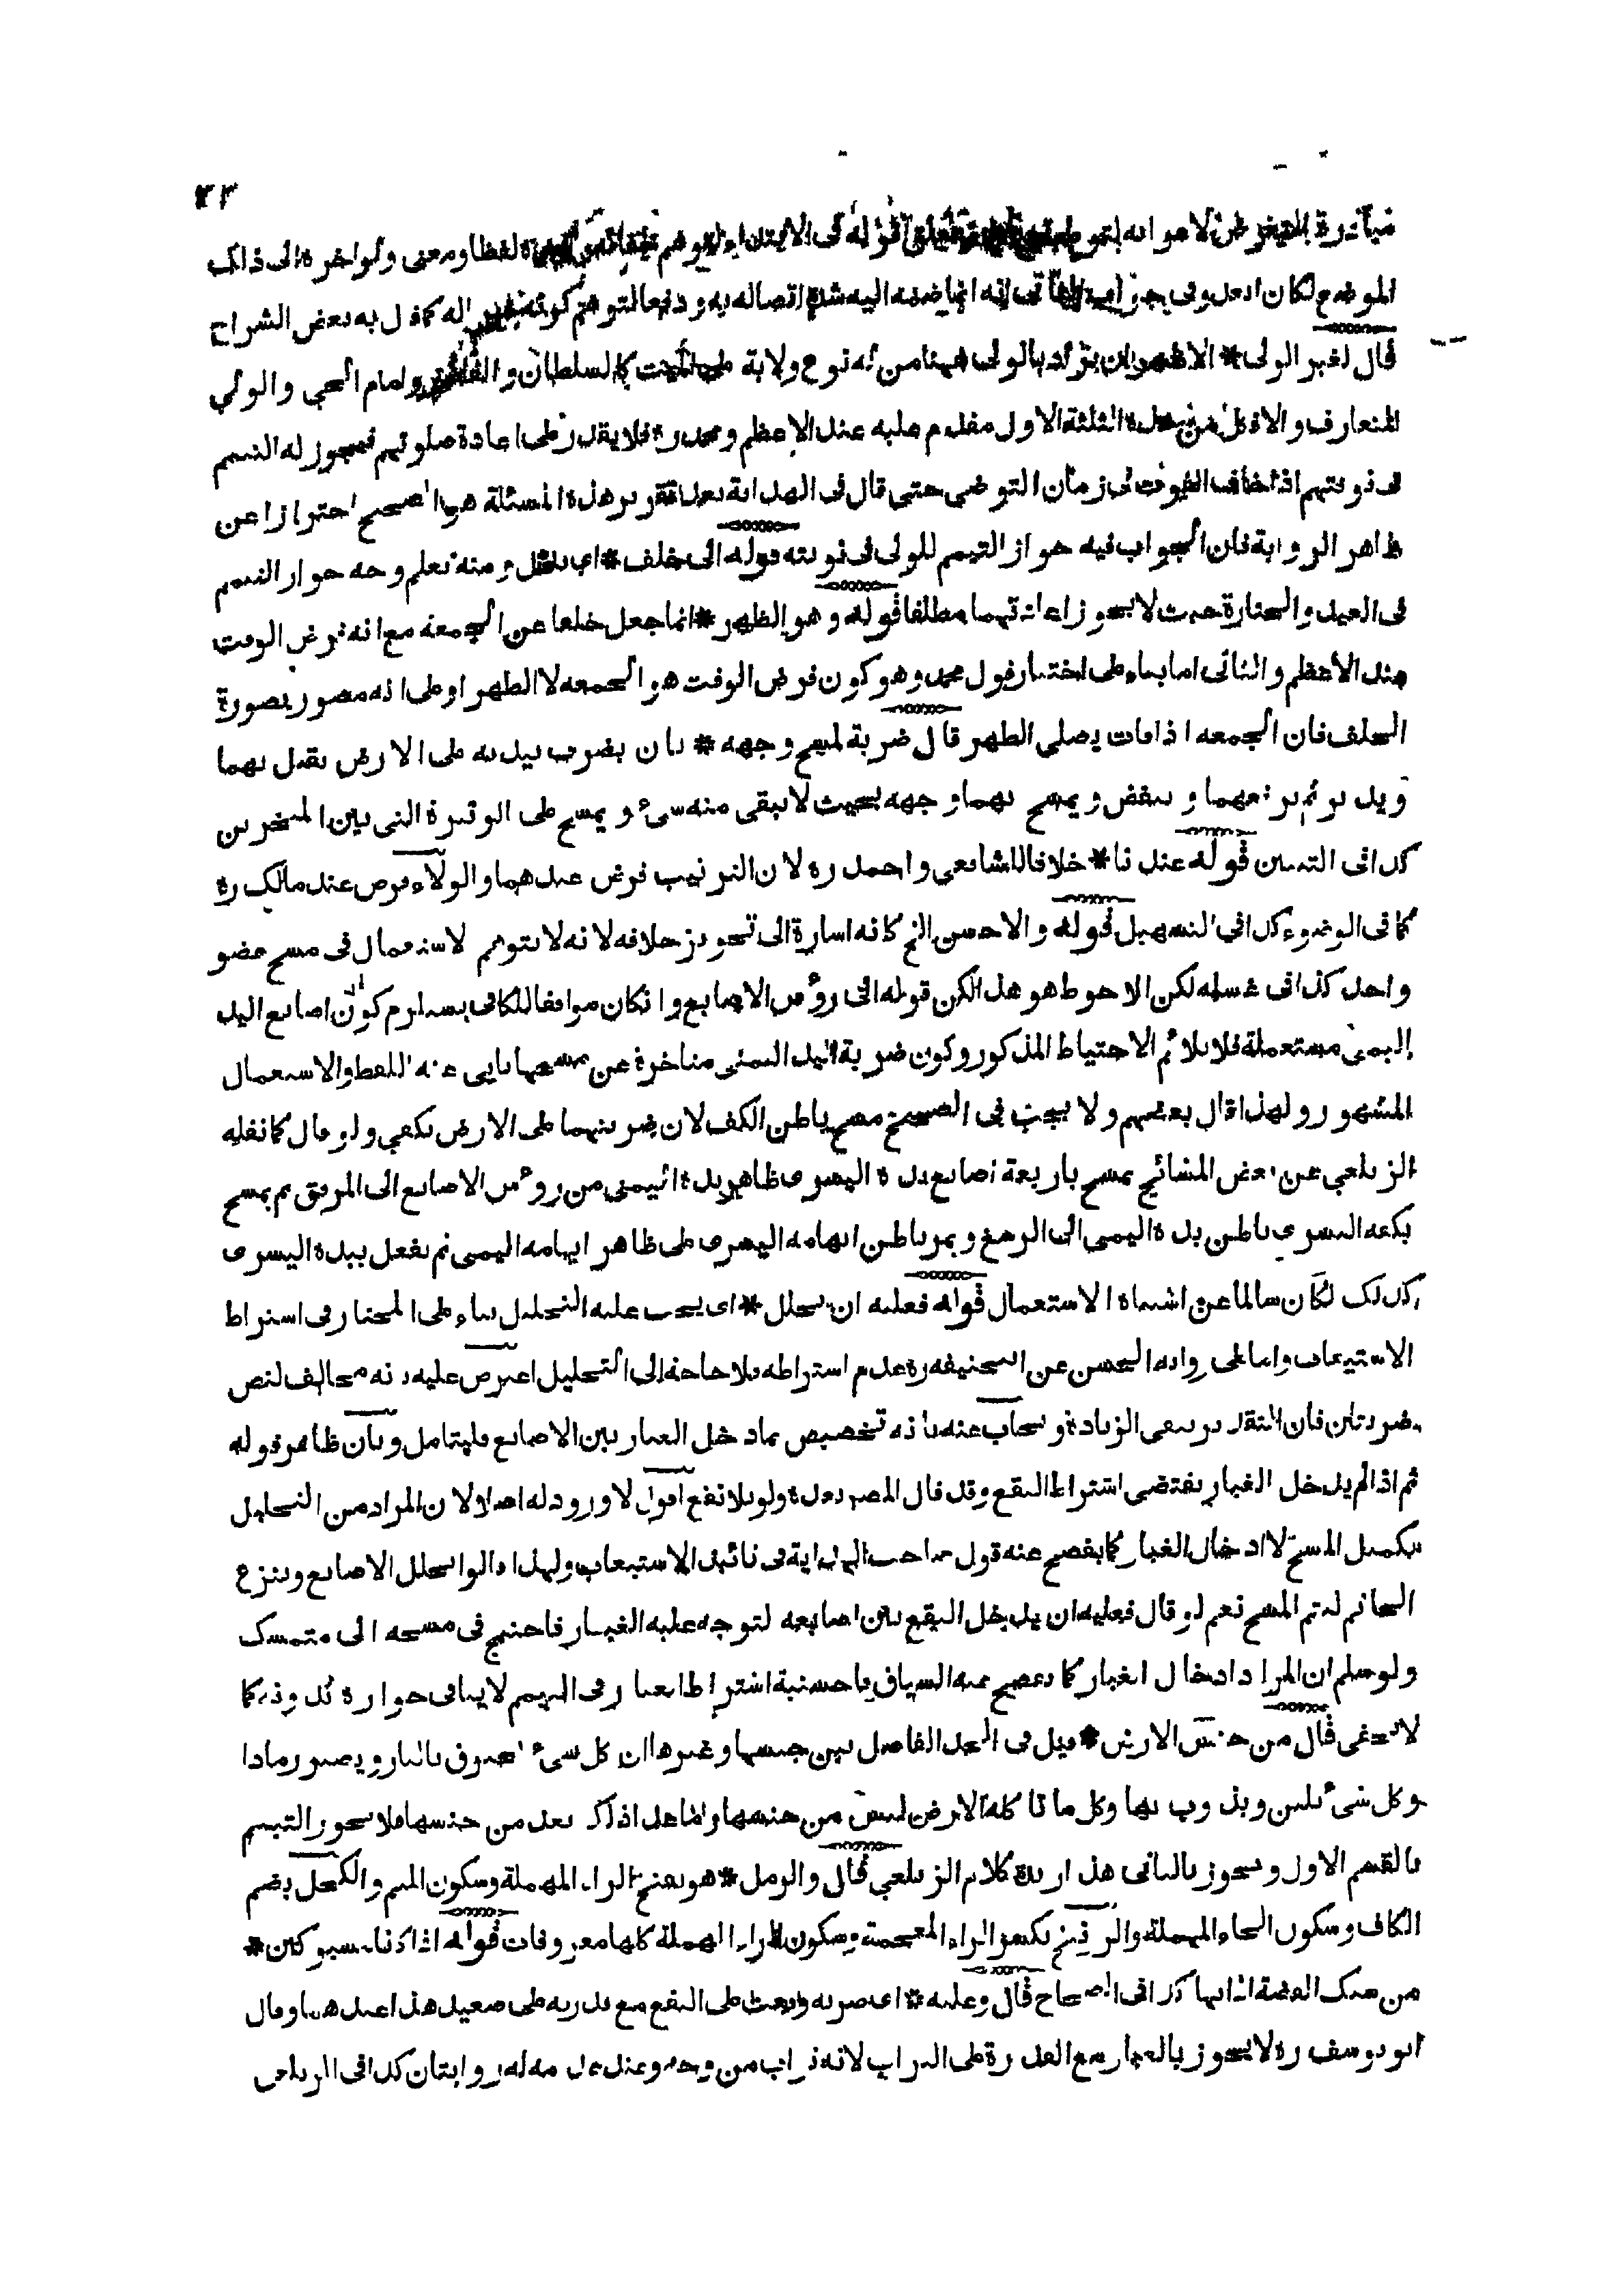 ٤٣
لفظا ومعنى ولو اخره الى ذلك
الموضع لكان انما ضمه اليه شدة اتصاله به ودفعا لتوهم كونه كما قال به بعض الشراح
قال لغير الولى * الاظهر ان يراد بالولى ههنا من له نوع ولاية كالسلطان و وامام الحى والولي
المتعارف و الثلثة الاول مقدم عليه عند الاعظم و فلا يقدر على اعادة صلوتهم فيجوز له التيمم
فى نوبتهم اذا خاف الفوت فى زمان التوضى حتى قال فى الهداية بعد تقرير هذه المسئلة هو الصحيح احترازا عن
ظاهر الرواية فان الجواب فيه جواز التيمم للولى فى نوبته قوله الى خلف * اى بدل ومنه تعلم وجه جواز التيمم
فى العيد والجنازة حيث لا يجوز اعادتهما مطلقا قوله وهو الظهر * انما جعل خلفا عن الجمعة مع انه فرض الوقت
عند الاعظم والثانى اما بناء على اختيار قول محمد وهو كون فرض الوقت هو الجمعة لا الظهر او على انه مصور بصورة
الخلف فان الجمعة اذا فات يصلى الظهر قال ضربة لمسح وجهه * بان يضرب يديه على الارض يقبل بهما
ويدبر ثم يرفعهما وينفض ويمسح بهما وجهه بحيث لا يبقى منه شىء ويمسح على الوتيرة التى بين المنخرين
كذا فى التبيين قوله عندنا * خلافا للشافعي واحمد ره لان الترتيب فرض عندهما والولاء فرض عند مالك ره
كما فى الوضوء كذا فى التسهيل قوله والاحسن الخ كانه اشارة الى تجويز خلافه لانه لا يتوهم الاستعمال فى مسح عضو
واحد كذا فى غسله لكن الاحوط هو هذا لكن قوله الى رؤس الاصابع وان كان موافقا للكافى يستلزم كون اصابع اليد
اليمنى مستعملة فلا يلائم الاحتياط المذكور وكون ضربة اليد اليمنى متاخرة عن مسحها يابى عنه اللفظ والاستعمال
المشهور ولهذا قال بعضهم ولا يجب فى الصحيح مسح باطن الكف لان ضربتهما على الارض يكفي ولو قال كما نقله
الزيلعي عن بعض المشائخ يمسح باربعة اصابع يده اليسرى ظاهر يده اليمنى من رؤس الاصابع الى المرفق ثم يمسح
بكفه اليسرى باطن يده اليمنى الى الرسغ ويمر باطن ابهامه اليسرى على ظاهر ابهامه اليمنى ثم يفعل بيده اليسرى
كذلك لكان سالما عن اشتباه الاستعمال قوله فعليه ان يخلل * اى يجب عليه التخليل بناء على المختار فى اشتراط
الاستيعاب واما على رواية الحسن عن ابي حنيفة ره عدم اشتراطه فلا حاجة الى التخليل اعترض عليه بانه مخالف لنص
ضربتان فان التقدير ينفى الزيادة ويجاب عنه بانه تخصيص بما دخل الغبار بين الاصابع فليتامل وبان ظاهر قوله
ثم اذا لم يدخل الغبار يقتضى اشتراط النقع وقد قال المص بعده ولو بلا نقع اقول لا ورود له اصلا لان المراد من التخليل
تكميل المسح لا ادخال الغبار كما يفصح عنه قول صاحب الهداية فى الاستيعاب ولهذا قالوا يخلل الاصابع وينزع
الخاتم ليتم المسح نعم لو قال فعليه ان يدخل النقع بين اصابعه لتوجه عليه الغبار فاحتيج فى مسحه الى متمسك
ولو سلم ان المراد ادخال الغبار كما يفصح عنه السياق لا ينافى جوازه بدونه كما
لا يخفى قال من جنس الارض * قيل فى الحد الفاصل بين جنسها وغيرها ان كل شىء يحترق بالنار ويصير رمادا
وكل شىء يلين ويذوب بها وكل ما تاكله الارض ليس من جنسها وما عدا ذلك يعد من جنسها فلا يجوز التيمم
بالقسم الاول ويجوز بالثانى هذا زبدة كلام الزيلعي قال والرمل * هو بفتح الراء المهملة وسكون الميم والكحل بضم
الكاف وسكون الحاء المهملة والزرنيخ بكسر الزاء المعجمة وسكون الراء المهملة كلها معروفات قوله اذا كانا مسبوكين *
من سبك الفضة اذابها كذا فى الصحاح قال وعليه * اى ضربه وبحث على النقع مع قدرته على صعيد هذا عندهما وقال
ابو يوسف ره لا يجوز بالغبار مع القدرة على التراب لانه تراب من وجه وعند عدمه له روايتان كذا فى الزيلعى